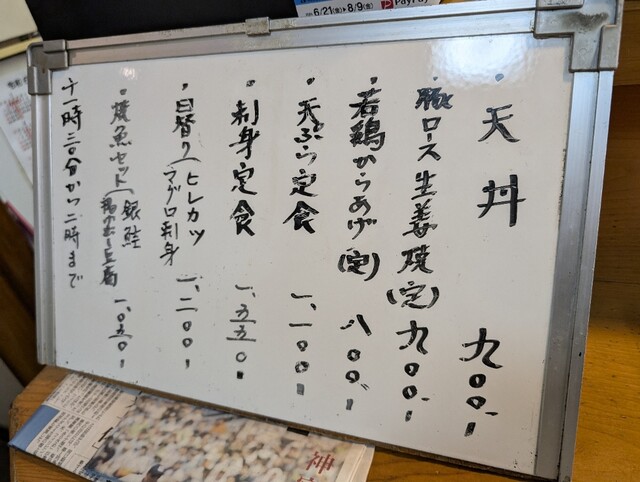 6/21(金)▸8/9(金) PayPay
・天丼 九〇〇、
・豚ロース生姜焼(定) 九〇〇、
・若鶏からあげ(定) 八〇〇、
・天ぷら定食 一、一〇〇、
・刺身定食 一、五五〇、
・日替り(ヒレカツ
マグロ刺身 一、二〇〇、
・焼魚セット(銀鮭
一、〇五〇、
十一時三〇分から二時まで
神